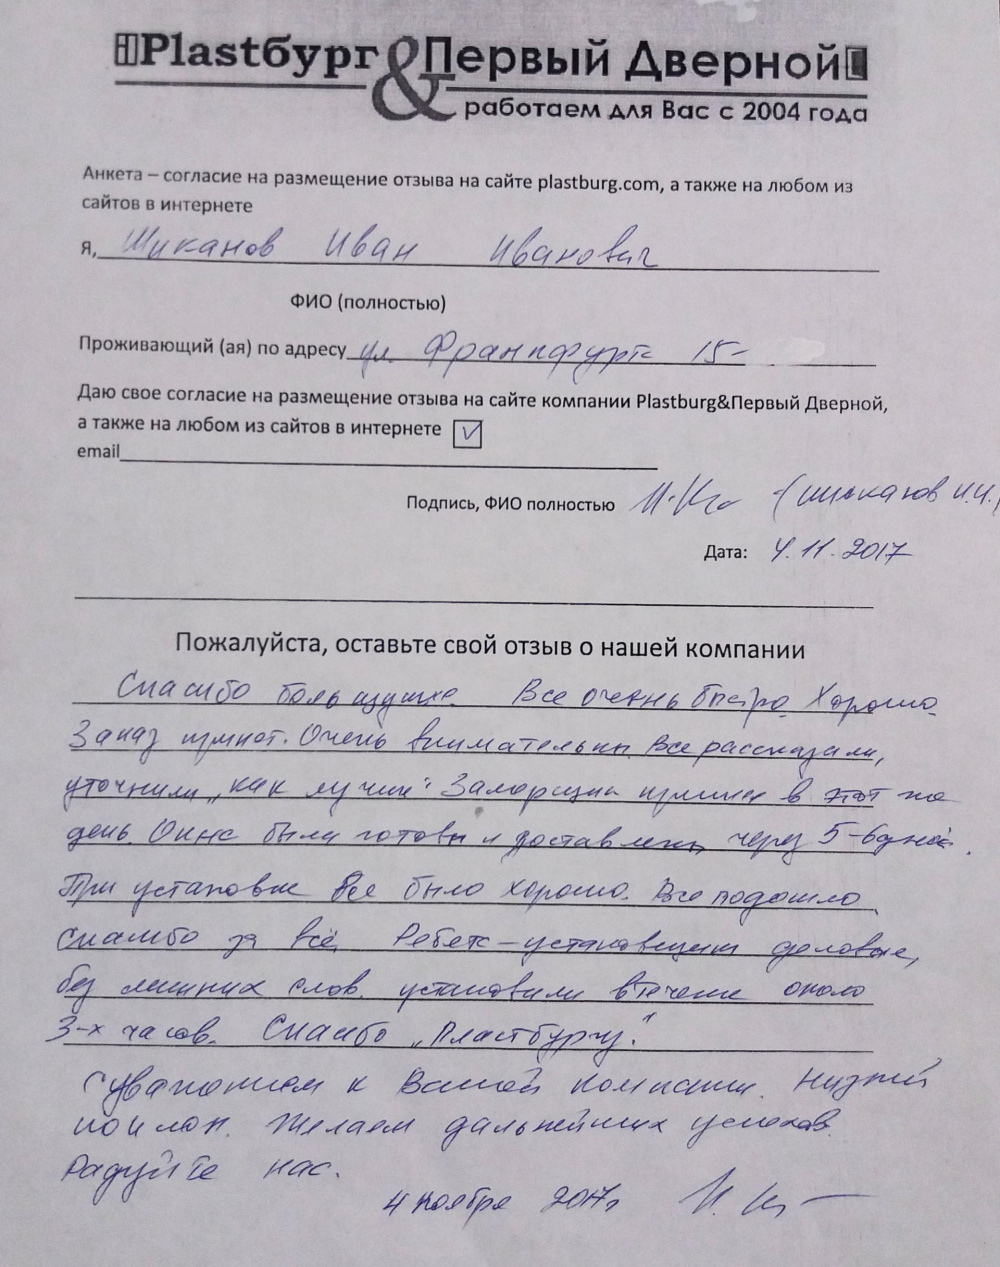 Plastбург & Первый Дверной
работаем для Вас с 2004 года
Анкета – согласие на размещение отзыва на сайте plastburg.com, а также на любом из
сайтов в интернете
Я, Шиканов Иван Иванович
ФИО (полностью)
Проживающий (ая) по адресу ул. 15-
Даю свое согласие на размещение отзыва на сайте компании Plastburg&Первый Дверной,
а также на любом из сайтов в интернете V
email
Подпись, ФИО полностью (Шиканов И.И.)
Дата: 4.11.2017
Пожалуйста, оставьте свой отзыв о нашей компании
Спасибо большущее. Все очень быстро. Хорошо.
Заказ принят. Очень внимательны. Все рассказали,
уточнили „как лучше". Замерщик в этот же
день. Окна были готовы и доставлены через 5-6 дней.
При установке все было хорошо. Все подошло.
Спасибо за всё. Ребята – установщики деловые,
без лишних слов. установили в течение около
3-х часов. Спасибо „Пластбургу".
С уважением к Вашей компании. Низкий
поклон. Желаем дальнейших успехов.
Радуйте нас.
4 ноября 2017г